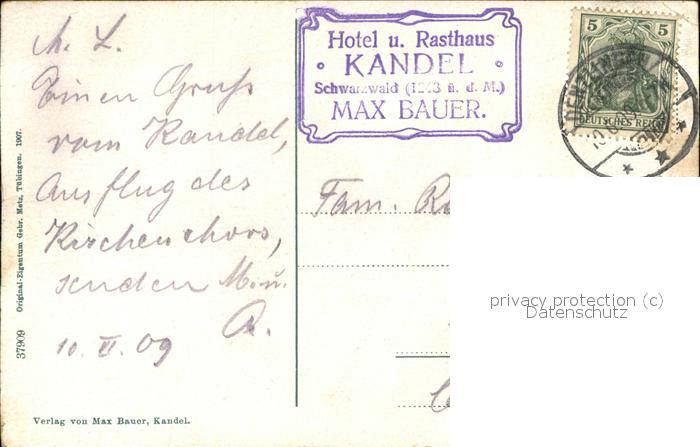 M. L.
Einen Gruß
vom Kandel,
Ausflug des
Kirchenchors,
senden M. u.
A.
10. VI. 09
Hotel u. Rasthaus
KANDEL
Schwarzwald (1243 ü. d. M.)
MAX BAUER.
5 5
DEUTSCHES REICH
Fam.
privacy protection (c)
Datenschutz
37909 Original-Eigentum Gebr. Metz, Tübingen, 1907.
Verlag von Max Bauer, Kandel.